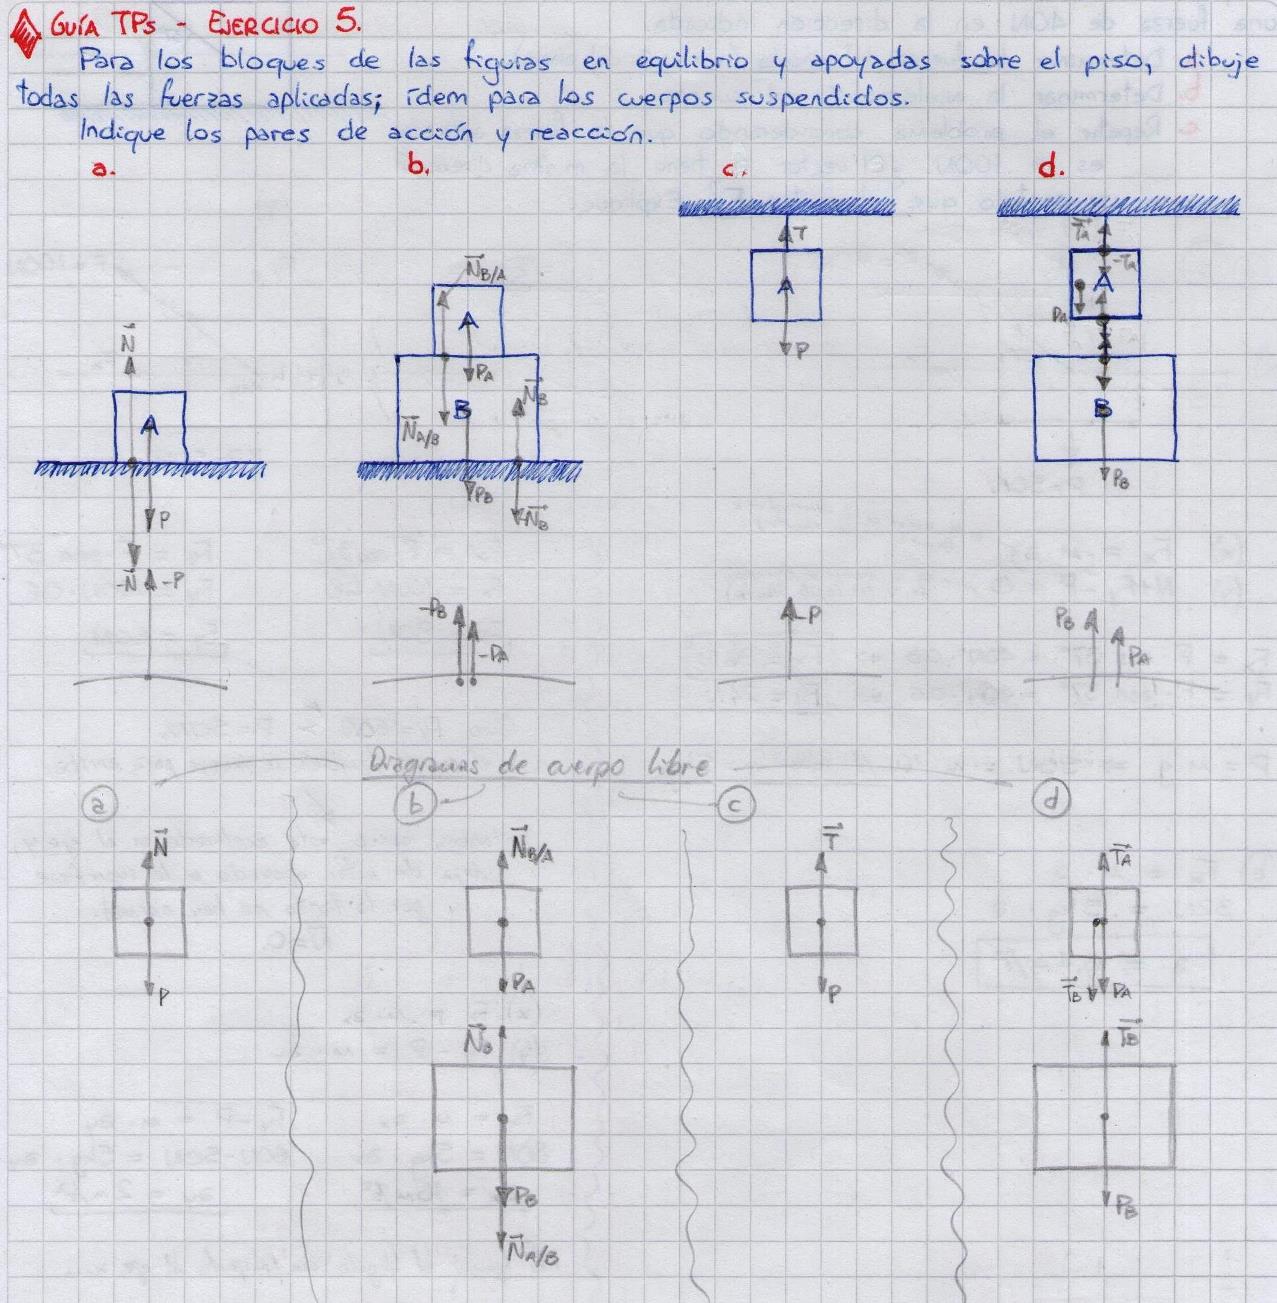 GUÍA TPs - EJERCICIO 5.
Para los bloques de las figuras en equilibrio y apoyadas sobre el piso, dibuje
todas las fuerzas aplicadas; ídem para los cuerpos suspendidos.
Indique los pares de acción y reacción.
a. b. c. d.
N
A
P
-N -P
N B/A
A
PA
B
N A/B
NB
PB
-NB
-PB
-PA
T
A
P
-P
TA
-TA
A
PA
B
PB
PB
PA
Diagramas de cuerpo libre
a b c d
N
P
N B/A
PA
NB
PB
N A/B
T
P
TA
TB PA
TB
PB